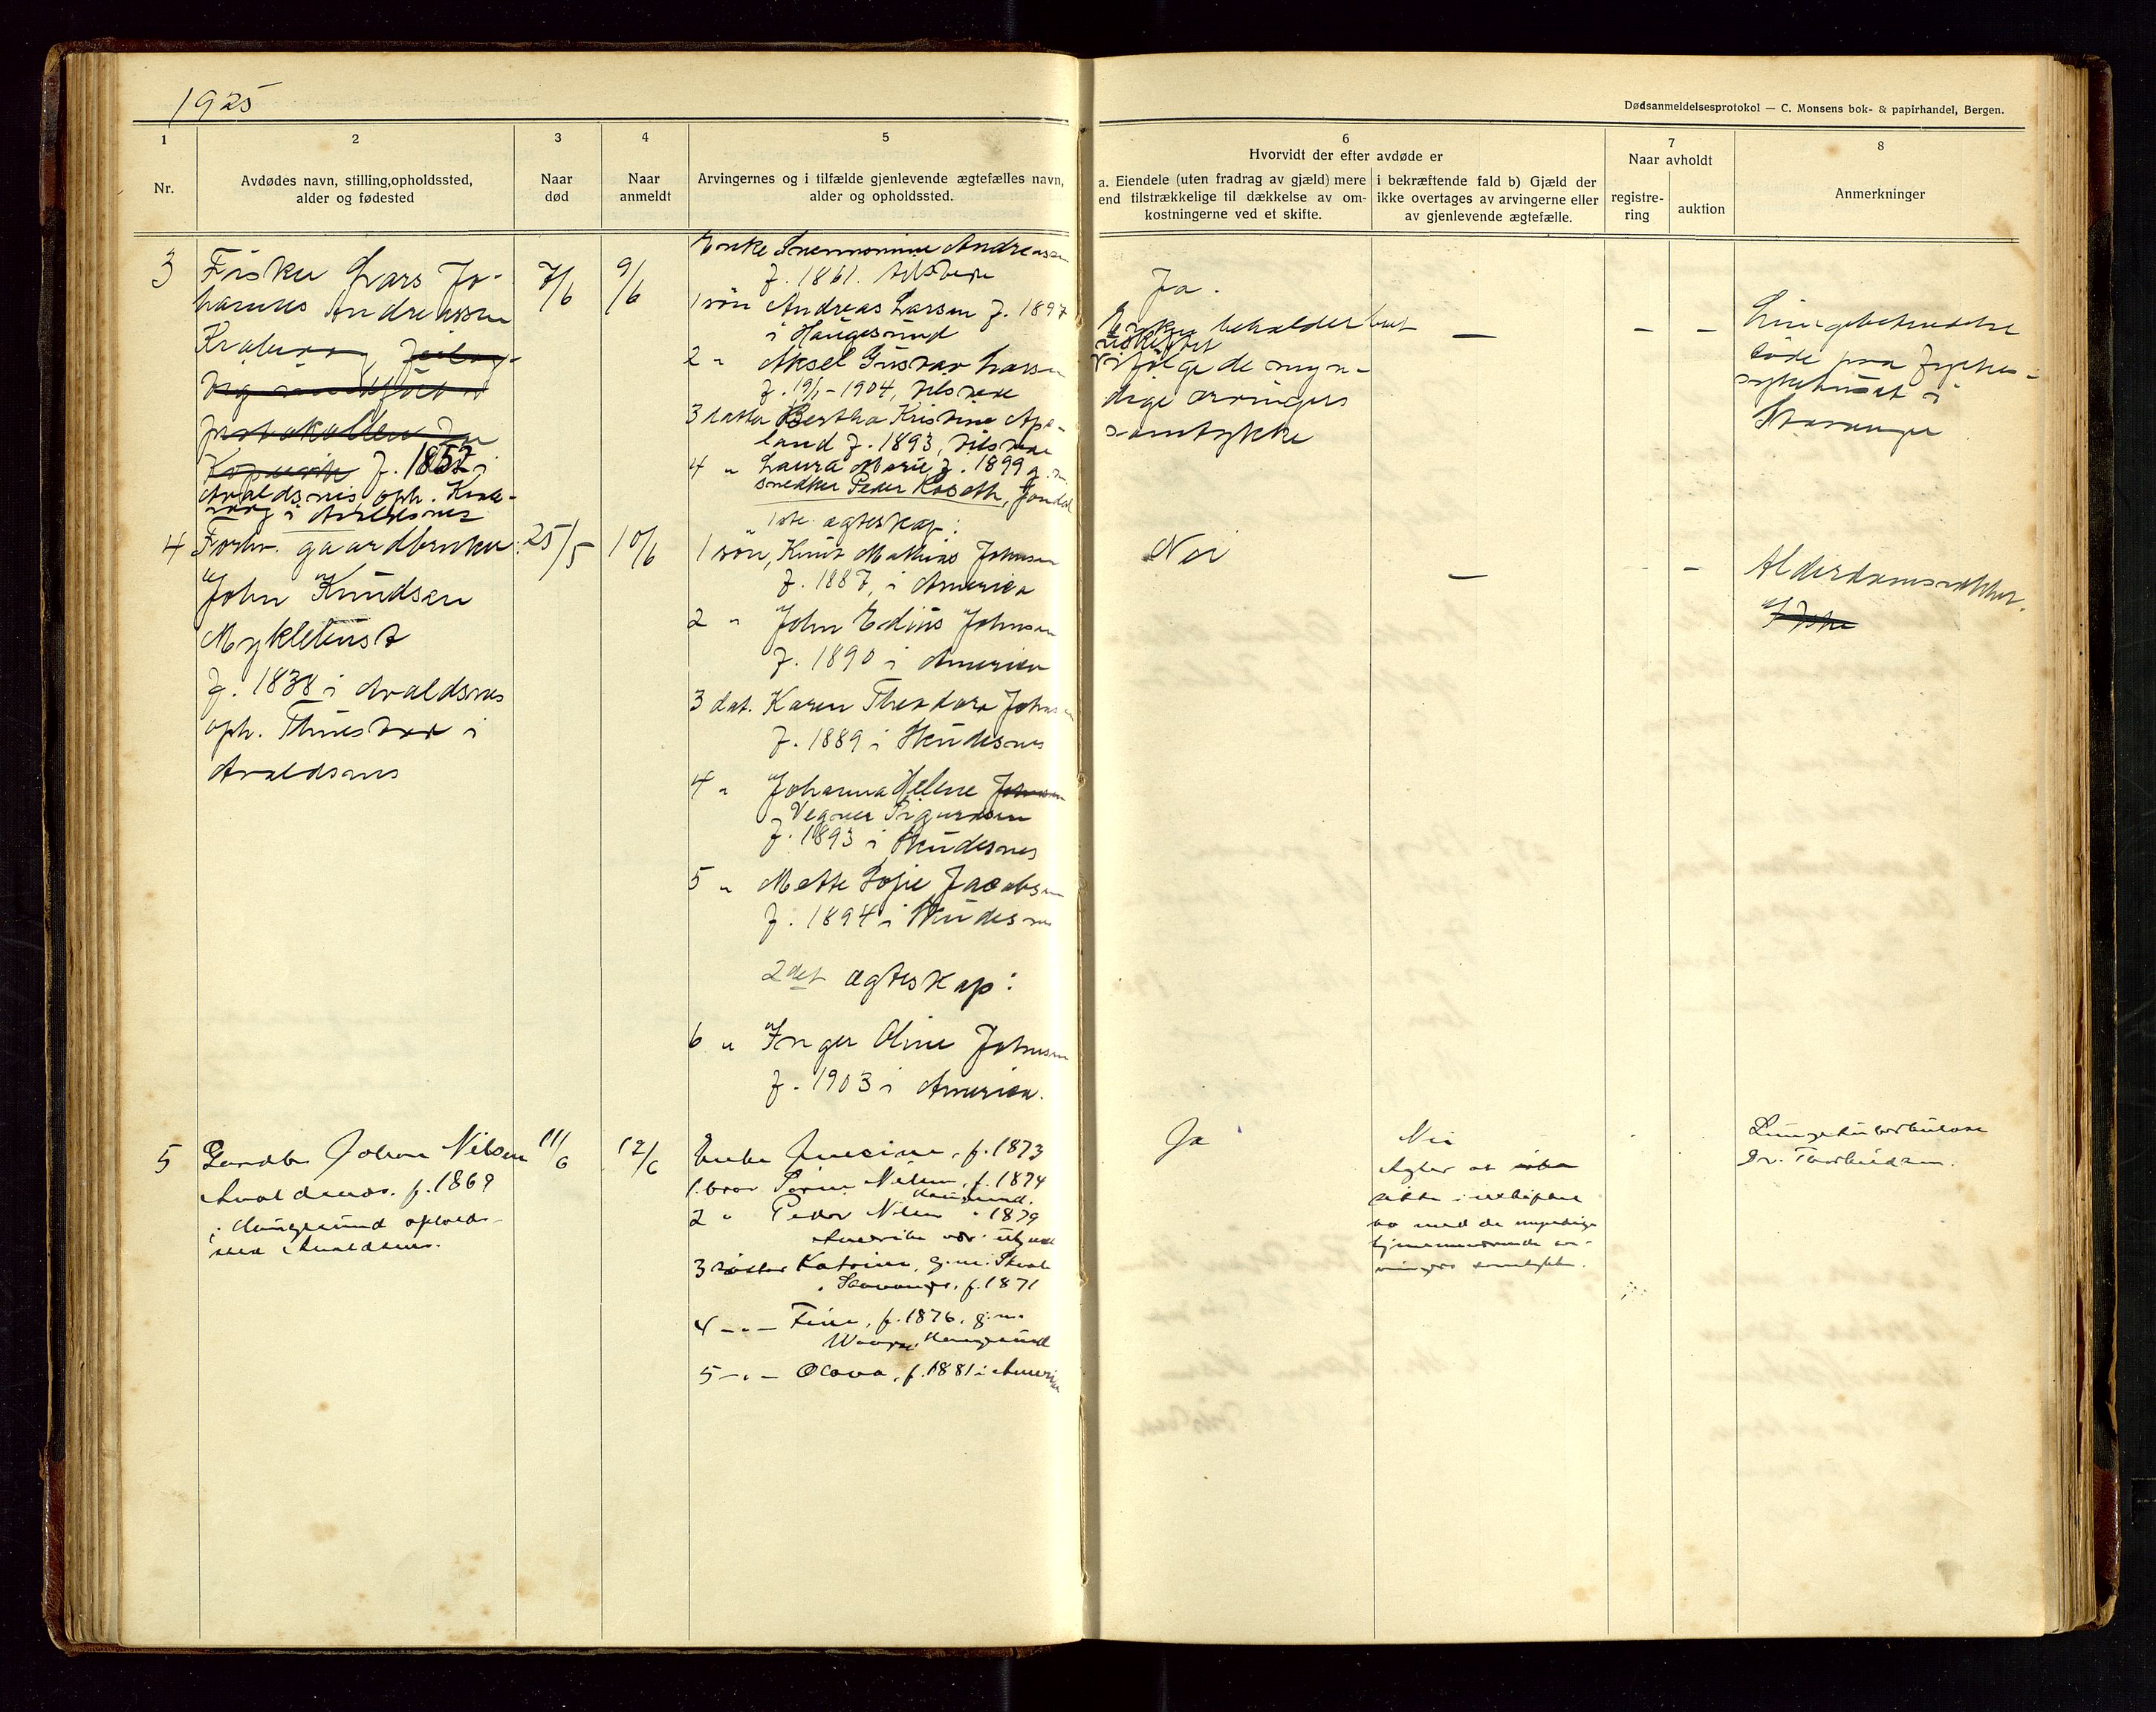 1925
Dødsanmeldelsesprotokol — C. Monsens bok- & papirhandel, Bergen.
1
2
3
4
5
6
7
8
Nr.
Avdødes navn, stilling, opholdssted,
alder og fødested
Naar
død
Naar
anmeldt
Arvingernes og i tilfælde gjenlevende ægtefælles navn,
alder og opholdssted.
Hvorvidt der efter avdøde er
a. Eiendele (uten fradrag av gjæld) mere
end tilstrækkelige til dækkelse av om-
kostningerne ved et skifte.
i bekræftende fald b) Gjæld der
ikke overtages av arvingerne eller
av gjenlevende ægtefælle.
Naar avholdt
registre-
ring
auktion
Anmerkninger
3
Fisker Lars Jo-
hannes Andreassen
f. 1857 i
Avaldsnes oph.
i Avaldsnes
7/6
9/6
Enke Andreassen
f. 1861. tilstede
1 søn Andreas Larsen f. 1897
i Haugesund
2 " Aksel Gustav Larsen
f. 19/1-1904, tilstede
3 datter Bertha Kristine Ape-
land f. 1893, tilstede
4 " Laura Marie f. 1899 g.m.
snedker Peder
Ja.
Enken beholder boet
uskiftet
ifølge de myn-
dige arvingers
samtykke
—
—
—
Lungebetændelse
døde paa fylkes-
sykehuset i
Stavanger
4
Forhv. gaardbruker
John Knudsen
Myklebust
f. 1838 i Avaldsnes
oph. i
Avaldsnes
25/5
10/6
1ste ægteskap:
1 søn, Knut Mathias Johnsen
f. 1887, i America
2 " John Edius Johnsen
f. 1890 i America
3 dat. Karen Theodora Johnsen
f. 1889 i Skudesnes
4 " Johanna Helene
Sigurdsen
f. 1893 i Skudesnes
5 " Mette Sofie Jacobsen
f. 1894 i Skudesnes
2det ægteskap:
6 " Inger Oline Johnsen
f. 1903 i America.
Nei
—
—
Alderdomssvakhet.
5
Gaardbr. Johan Nilsen
Avaldsnes. f. 1869
i Haugesund opholds-
sted Avaldsnes.
11/6
12/6
Enke f. 1873
1. bror Nilsen, f. 1874
Haugesund.
2 " Peder Nilsen " 1879
Amerika
3 søster Katrine, g.m.
Stavanger, f. 1871
4 — " — f. 1876, g.m.
Haugesund
5 — " — Olava, f. 1881 i Amerika
Ja
Nei
Agter at
sitte i uskiftet
bo med de myndige
hjemmeværende ar-
vingers samtykke.
Lungetuberkulose
Dr.